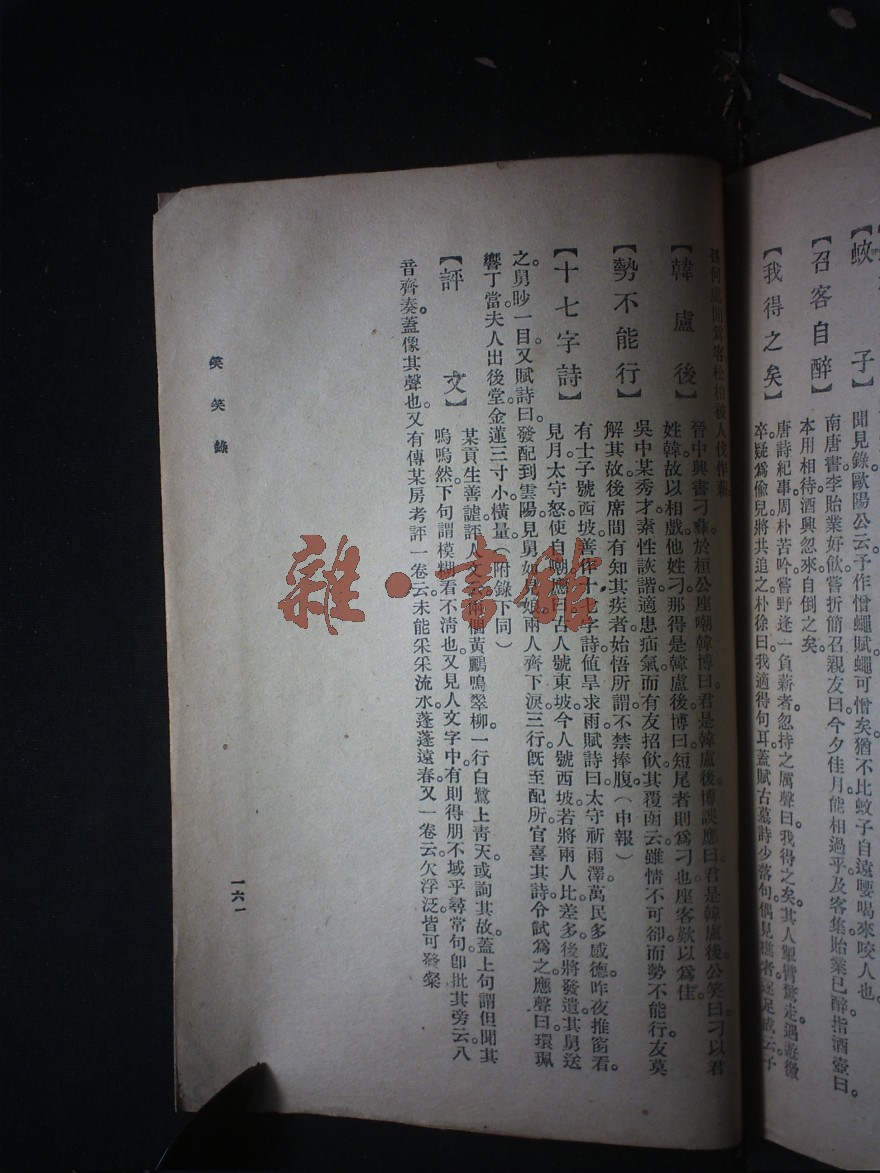 子
聞見錄歐陽公云予作憎蠅賦蠅可憎矣猶不比蚊子自遠嚶喝來咬人也。
【召客自醉】
南唐書李貽業好飲嘗折簡召親友曰今夕佳月能相過乎及客集貽業已醉指酒壺曰。
本用相待酒興忽來自倒之矣。
【我得之矣】
唐詩紀事周朴苦吟嘗野逢一負薪者忽持之厲聲曰我得之矣其人
卒疑爲偷兒將共追之朴徐曰我適得句耳蓋賦古墓詩少落句偶見樵者
作薪
【韓盧後】
晉中興書刁彝於桓公座嘲韓博曰君是韓盧後博謨應曰君是韓盧後公笑曰刁以君
姓韓故以相戲他姓刁那得是韓盧後博曰短尾者則爲刁也座客歎以爲佳
【勢不能行】
吳中某秀才素性詼諧適患疝氣而有友招飲其覆函云雖情不可卻而勢不能行友莫
解其故後席間有知其疾者始悟所謂不禁捧腹(申報)
【十七字詩】
有士子號西坡善作十七字詩値旱求雨賦詩曰太守祈雨澤萬民多感德昨夜推窗看。
見月太守怒使自嘲應曰古人號東坡今人號西坡若將兩人比差多後將發遣其舅送
之。舅眇一目又賦詩曰發配到雲陽見舅如見娘兩人齊下淚三行旣至配所官喜其詩令試爲之應聲曰環珮
響丁當夫人出後堂金蓮三寸小橫量。(附錄下同)
【評文】
某貢生善謔評人文云兩個黃鸝鳴翠柳一行白鷺上靑天或詢其故蓋上句謂但聞其
嗚嗚然下句謂模糊看不淸也又見人文字中有則得朋不域乎尋常句卽批其旁云八
音齊奏蓋像其聲也又有傳某房考評一卷云未能采采流水蓬蓬遠春又一卷云欠浮泛皆可發粲
笑笑錄
一六一
雜·書館